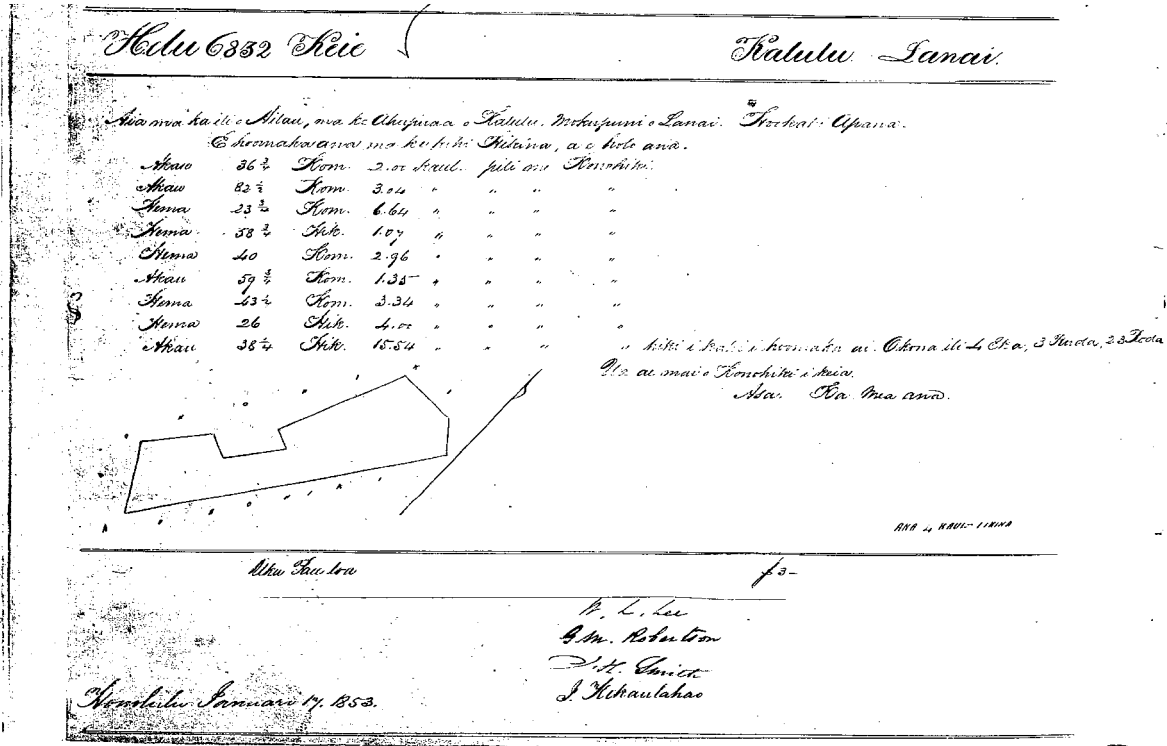 Helu 6832 Keie Kalulu Lanai.
Aia ma ka ili o Ailau, ma ke Ahupuaa o Kalulu. Mokupuni o Lanai. Hookahi Apana.
E hoomaka ana ma ke kihi Hikina, a e holo ana.
Akau 36 3/4 Kom. 2.00 kaul. pili me Konohiki.
Akau 82 1/2 Kom. 3.04 " " " "
Hema 23 3/4 Kom. 6.64 " " " "
Hema 58 3/4 Hik. 1.07 " " " "
Hema 40 Kom. 2.96 " " " "
Akau 59 3/4 Kom. 1.35 " " " "
Hema 43 1/2 Kom. 3.34 " " " "
Hema 26 Hik. 4.00 " " " "
Akau 38 1/4 Hik. 15.54 " " " " hiki i kahi i hoomaka ai. Okona ili 4 Eka, 3 Ruda, 23 Roda
Ua ae mai o Konohiki i keia.
Asa. Ka mea ana.
ANA 4 KAUL
Uku Pau loa $3-
W. L. Lee
G. M. Robertson
J. H. Smith
J. Kekaulahao
Honolulu Januari 17. 1853.